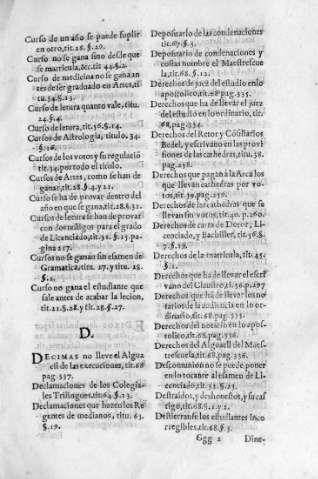 Curso de un año se puede suplir
en otro, tit.28. §.20.
Curso no se gana sino desde que
se matricula, &c. tit 44. §.2.
Curso de medicina no se gana an
tes de ser graduado en Artes, ti
tu.34.§.23.
Curso de letura quanto vale, titu.
24.§.4.
Curso de letura, tit.56.§.14.
Cursos de Astrologia, titulo, 34.
Cursos de los votos y su regulació
tit.34. por todo el titulo.
Cursos de Artes, como se han de
ganar, tit.28.§.4. y 21.
Curso se ha de provar dentro del
año en que se gana, tit.28.§.31.
Cursos de letura se hon de provar
con dos testigos para el grado
de Licenciado, tit.31.§.15. pa
gina 217.
Cursos no se ganan sin examen de
Gramatica, titu. 27. y titu. 25.
§.1.
Curso no gana el estudiante que
sale antes de acabar la lecion,
tit.21.§.28. y tit.28.§.27.
D.
DECIMAS no lleve el Algua
cil de las execuciones, tit.68
pag.337.
Declamaciones de los Colegia-
les Trilingues, tit.64.§.13.
Declamaciones que hazen los Re
gentes de medianos, titu. 63.
§.19.
Depositario de las condenaciones
tit.67.§.3.
Depositario de condenaciones y
costas nombre el Maestrescue
la, tit.68.§.12.
Derechos de juez del estudio en lo
apostolico, tit.68. pag.335.
Derechos que ha de llevar el juez
del estudio en lo ordinario, tit.
68, pag.334.
Derechos del Retor y Cósiliarios
Bedel, y escrivano en las provi
siones de las cathedras, titu.38.
pag.258.
Derechos que pagan à la Arca los
que llevan cathedras por vo-
tos, tit.39. pag.258.
Derechos de las cathedras que se
llevan sin votos, tit.40. p.260.
Derechos de cartas de Dotor, Li-
cenciado, y Bachiller, tit.56.§.
7.§.19.
Derechos de la matricula, tit.45.
§.1.
Derechos que ha de llevar el escri
vano del Claustro, tit.50. p.277
Derechos que ha de llevar los no
tarios de la audiécia en lo or-
dinario, tit.68. pag.335.
Derechos del notario en lo apos-
tolico, tit.68. pag.336.
Derechos del Alguacil del Maes-
trescuela, tit.68. pag.336.
Descomunion no se puede poner
en lo tocante al examen de Li-
cenciado, tit.32.§.25.
Destraidos, y deshonestos, y su cas
tigo, tit.68.§.1. y 2.
Destierrense los estudiantes inco
rregibles, tit.68.§.3.
Ggg 2 Dine-